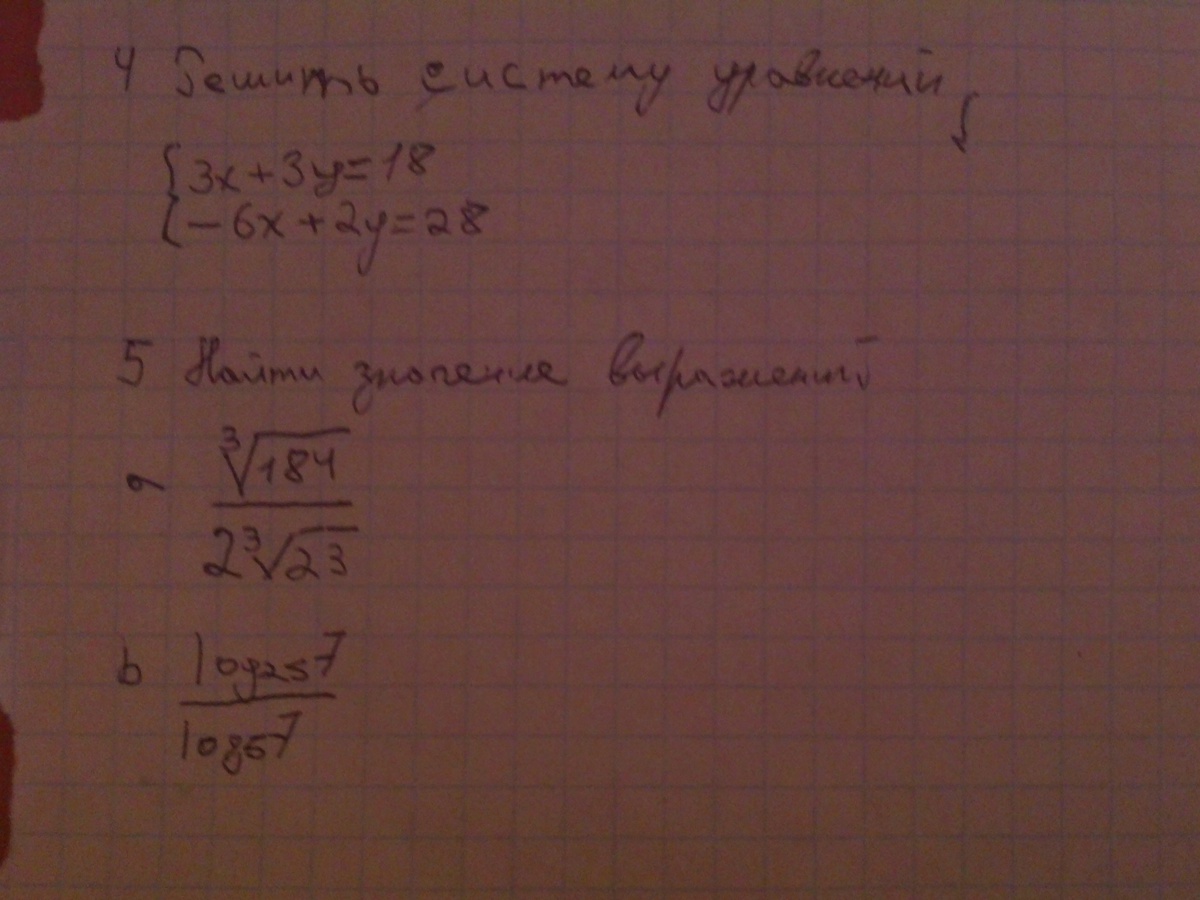 4 Решить систему уравнений
{3x+3y=18
{-6x+2y=28
5 Найти значение выражений
a ∛184
2∛23
b log₂₅7
log₅7